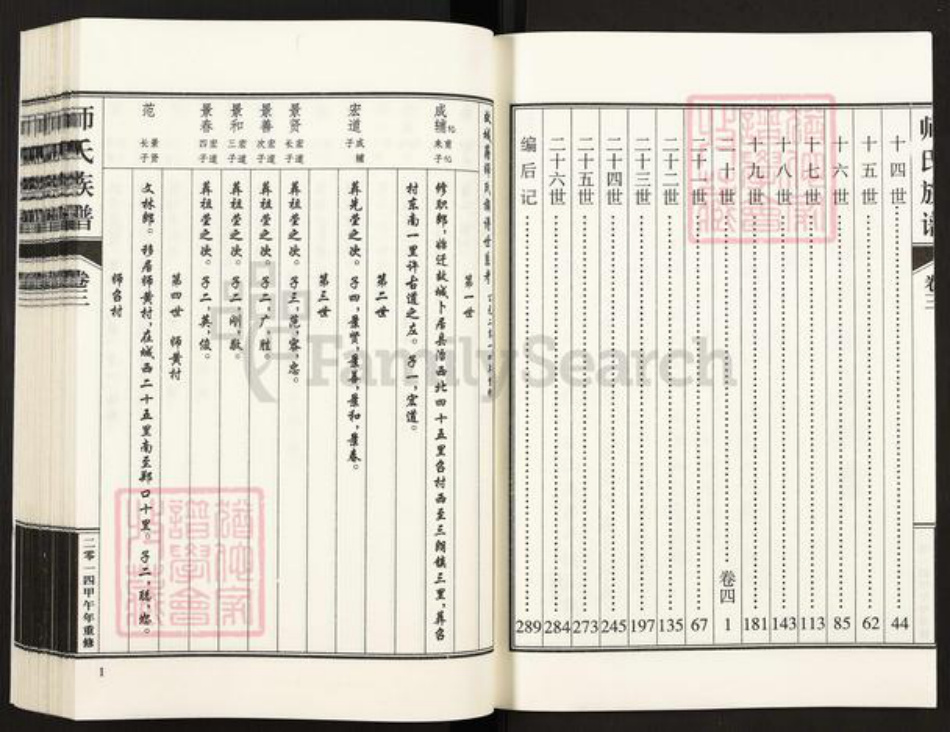 师氏族谱
卷三
十四世 44
十五世 62
十六世 85
十七世 113
十八世 143
十九世 181
二十世 卷四 1
二十一世 67
二十二世 135
二十三世 197
二十四世 245
二十五世 273
二十六世 284
编后记 289
故城 师氏族谱世系考
第一世
成辅
修职郎，始迁故城卜居县治西北四十五里召村西至三朗镇三里，葬召
村东南一里许古道之左。子一，宏道。
第二世
宏道 成辅子
葬先茔之次。子四，景贤，景善，景和，景春。
第三世
景贤 宏道长子
葬祖茔之次。子三，范，容，忠。
景善 宏道次子
葬祖茔之次。子二，广，胜
景和 宏道三子
葬祖茔之次。子二，刚，敬
景春 宏道四子
葬祖茔之次。子二，英，俊。
第四世 师黄村
范 景贤长子
文林郎。移居师黄村，在城西二十五里南至郑口十里。子二，聪，
师召村
师氏族谱
卷三
二零一四甲午年重修
1
FamilySearch